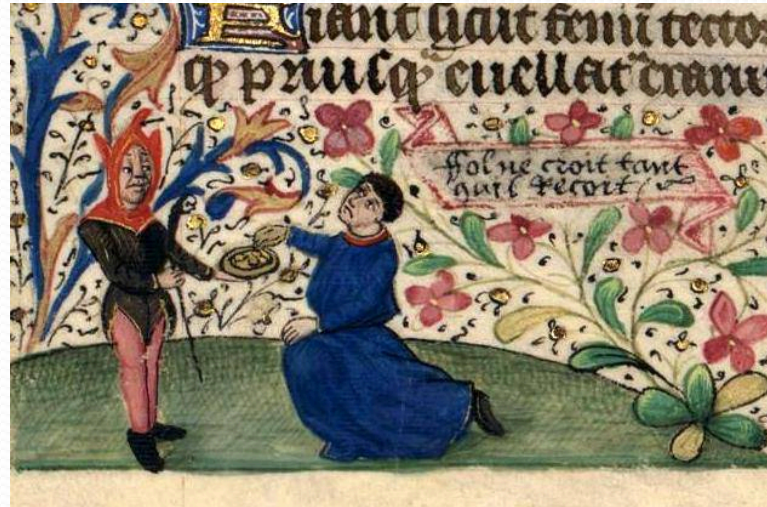 Fiant sicut fenū tectoꝝ
qꝫ priusqꝫ euellatᵉ exarui
ffol ne croit tant
quil recoit